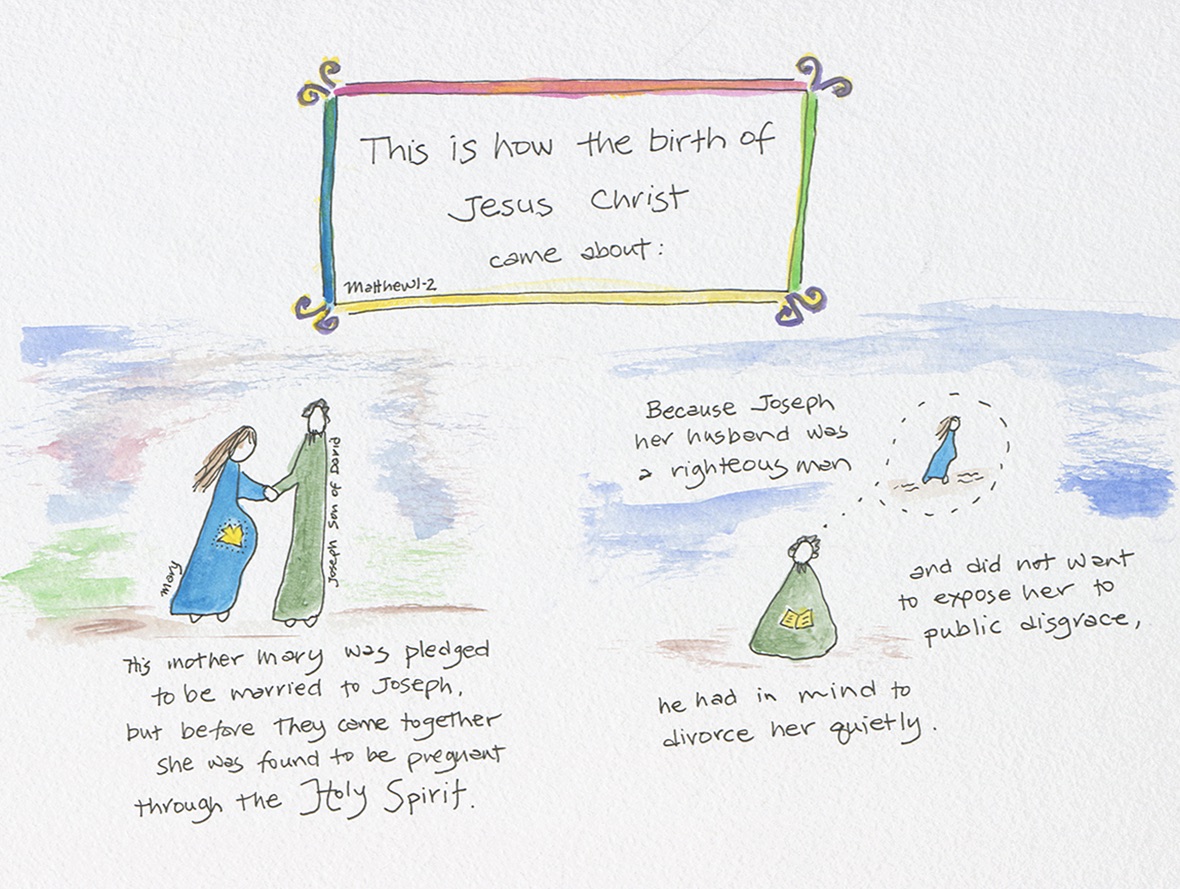 This is how the birth of
Jesus Christ
came about:
Matthew1-2
Mary
Joseph Son of David
His mother Mary was pledged
to be married to Joseph,
but before They came together
she was found to be pregnant
through the Holy Spirit.
Because Joseph
her husband was
a righteous man
and did not want
to expose her to
public disgrace,
he had in mind to
divorce her quietly.